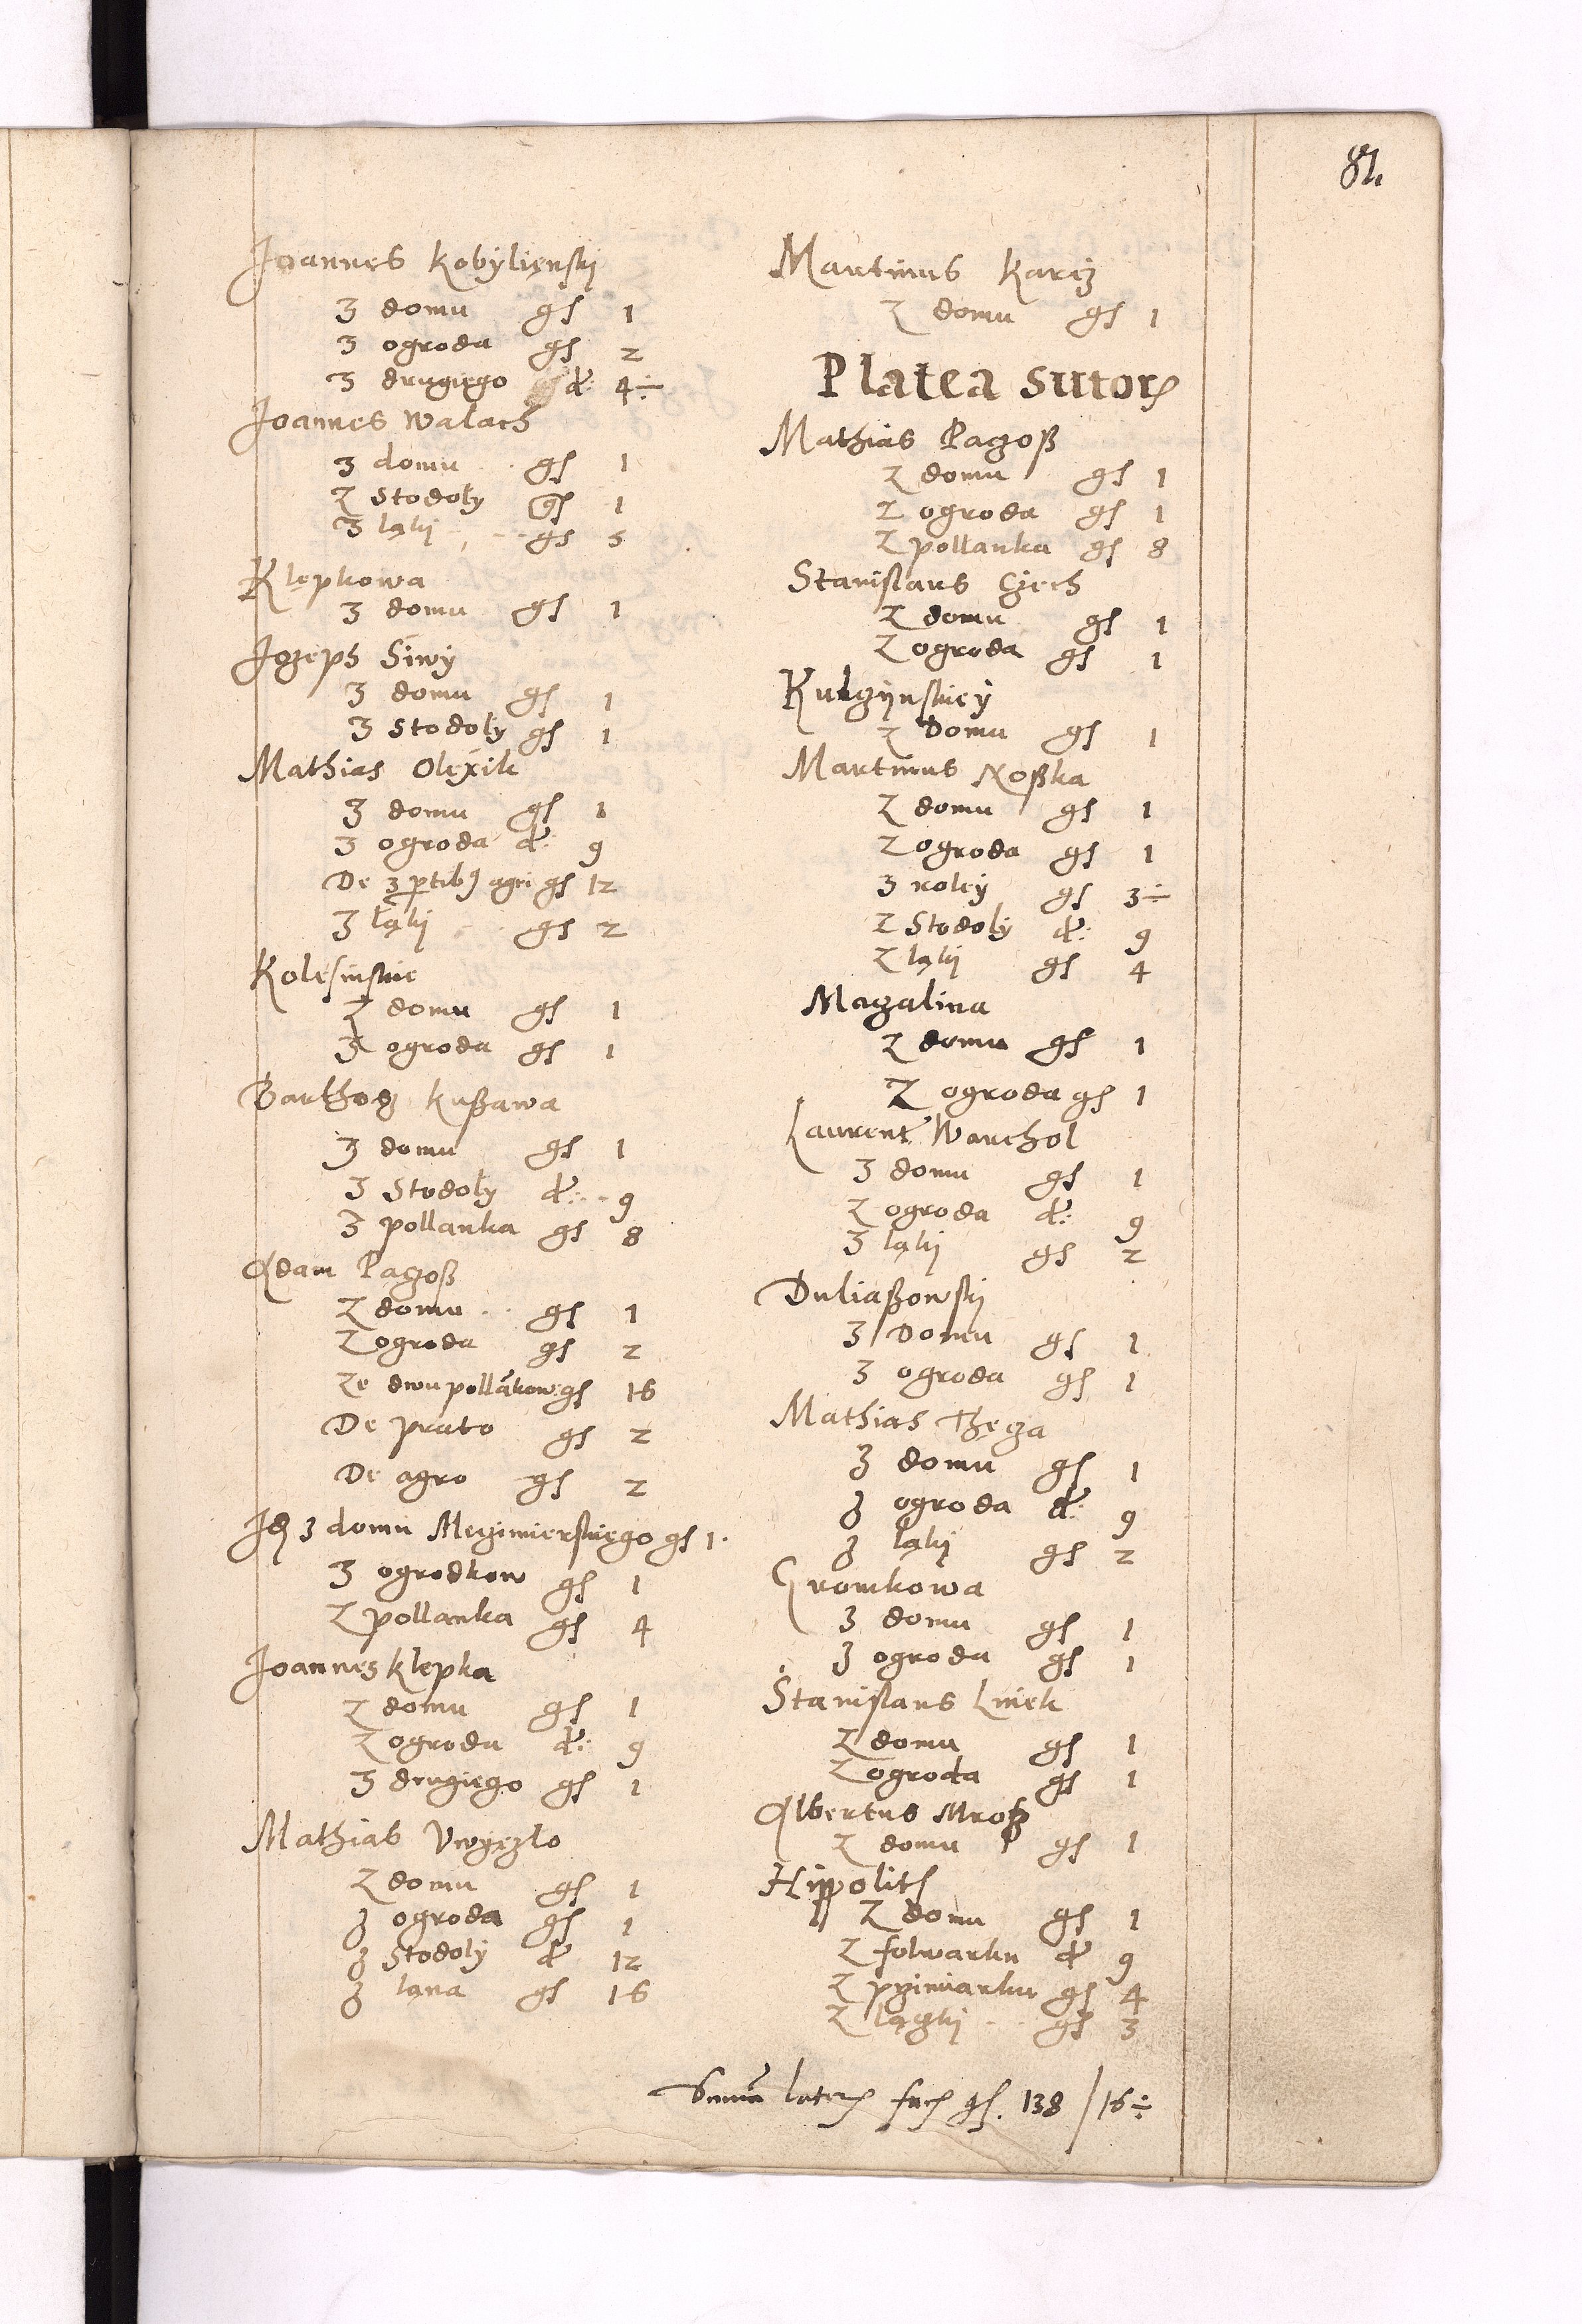 81.
Joannes Kobylienski
z domu gs 1
z ogroda gs 2
z drugiego d: 4÷
Joannes Walach
z domu gs 1
z stodoly gs 1
z ląki gs 5
Klepkowa
z domu gs 1
Jozeph Siwy
z domu gs 1
z stodoly gs 1
Mathias Olexik
z domu gs 1
z ogroda d: 9
De 3 ptib9 agri gs 12
z ląki gs 2
Kolesinskie
z domu gs 1
z ogroda gs 1
Barthoß Kußawa
z domu gs 1
z stodoly d: 9
z pollanka gs 8
Adam Pagoß
z domu gs 1
z ogroda gs 2
ze dwu pollãkow gs 16
De prato gs 2
De agro gs 2
z domu Megimierskiego gs 1.
z ogrodkow gs 1
z pollanka gs 4
Joannes Klepka
z domu gs 1
z ogrodu d: 9
z drugiego gs 1
Mathias
z domu gs 1
z ogroda gs 1
z stodoly d 12
z lana gs 16
Martinus Karcz
z domu gs 1
Platea sutor
Mathias Pagoß
z domu gs 1
z ogroda gs 1
z pollanka gs 8
Stanislaus Czech
z domu gs 1
z ogroda gs 1
Kulczynskiey
z domu gs 1
Martinus Noßka
z domu gs 1
z ogroda gs 1
z roley gs 3÷
z stodoly d: 9
z ląki gs 4
Magalina
z domu gs 1
z ogroda gs 1
Laurent Warchol
z domu gs 1
z ogroda d: 9
z ląki gs 2
Duliaßowski
z domu gs 1
z ogroda gs 1
Mathias
z domu gs 1
z ogroda d: 9
z ląki gs 2
Gromkowa
z domu gs 1
z ogroda gs 1
Stanislaus Lniek
z domu gs 1
z ogroda gs 1
Albertus Mroß
z domu gs 1
Hippolit
z domu gs 1
z folwarku d 9
z gs 4
z gs 3
Suma later facit gs. 138 / 16÷